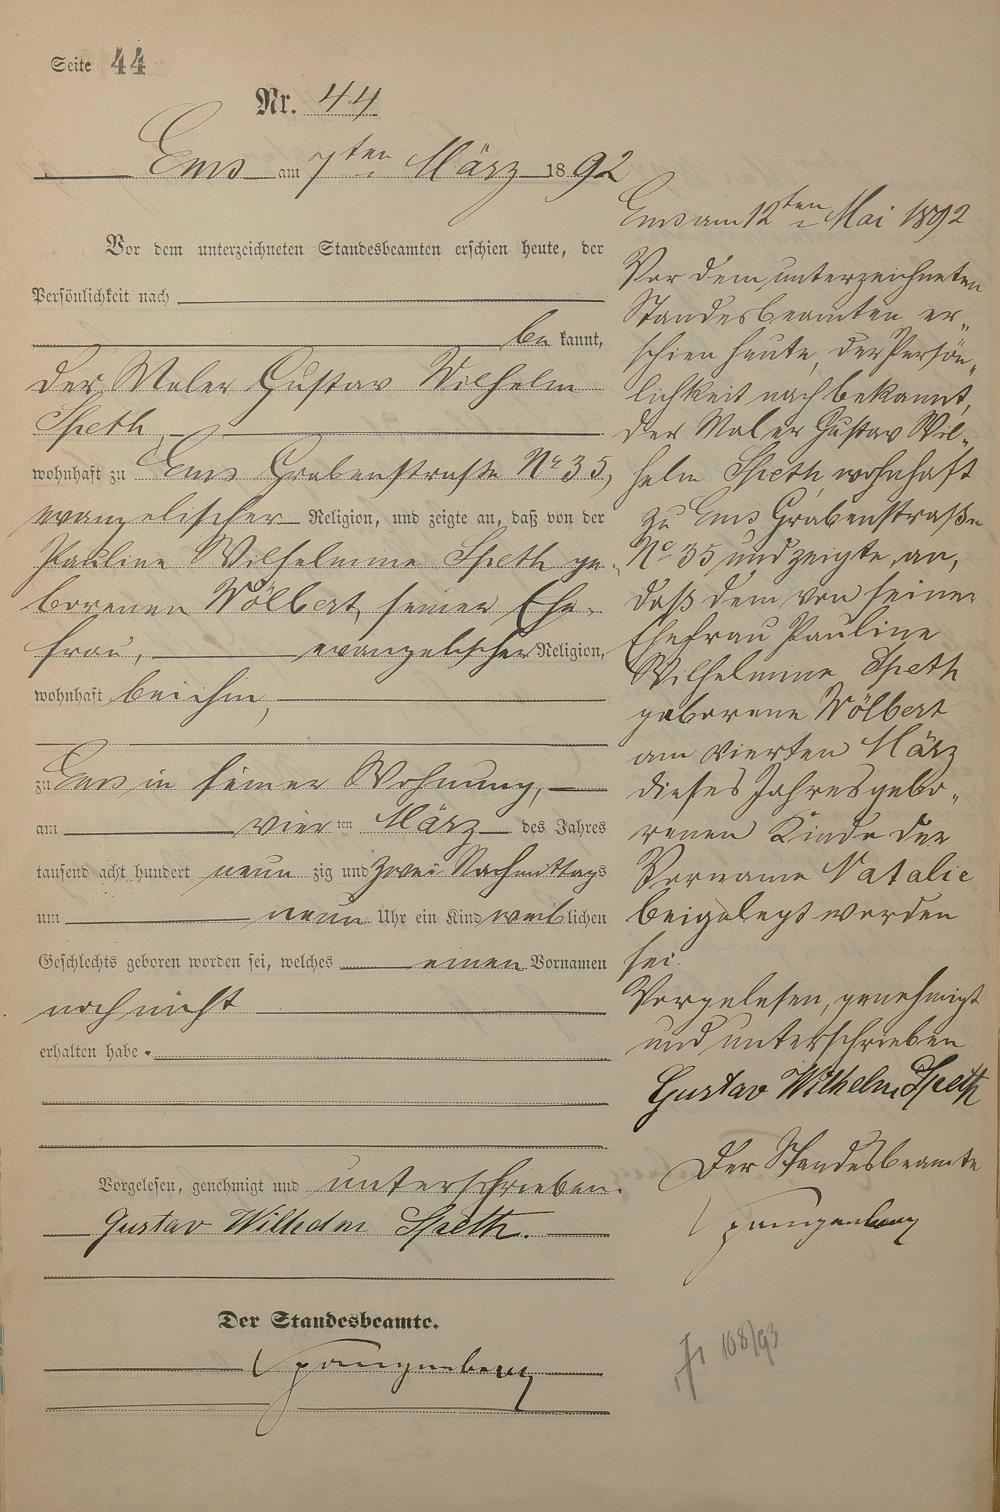 Seite 44
Nr. 44
Ems am 7ten März 1892
Vor dem unterzeichneten Standesbeamten erschien heute, der
Persönlichkeit nach
be kannt,
der Maler Gustav Wilhelm
Speth,
wohnhaft zu Ems Grabenstraße No 35,
evangelischer Religion, und zeigte an, daß von der
Pauline Wilhelmine Speth ge-
borenen Wölbert, seiner Ehe-
frau, evangelischer Religion,
wohnhaft bei ihm,
zu Ems in seiner Wohnung,
am vier ten März des Jahres
tausend acht hundert neun zig und zwei Nachmittags
um neun Uhr ein Kind weiblichen
Geschlechts geboren worden sei, welches einen Vornamen
noch nicht
erhalten habe.
Vorgelesen, genehmigt und unterschrieben.
Gustav Wilhelm Speth.
Der Standesbeamte.
Spangenberg
Ems am 12ten Mai 1892
Vor dem unterzeichneten
Standesbeamten er-
schien heute, der Persön-
lichkeit nach bekannt,
der Maler Gustav Wil-
helm Speth wohnhaft
zu Ems Grabenstraße
No 35 und zeigte an,
daß dem von seiner
Ehefrau Pauline
Wilhelmine Speth
geborene Wölbert
am vierten März
dieses Jahres gebo-
renen Kinde der
Vorname Natalie
beigelegt worden
sei.
Vorgelesen, genehmigt
und unterschrieben
Gustav Wilhelm Speth
Der Standesbeamte
Spangenberg
108/93